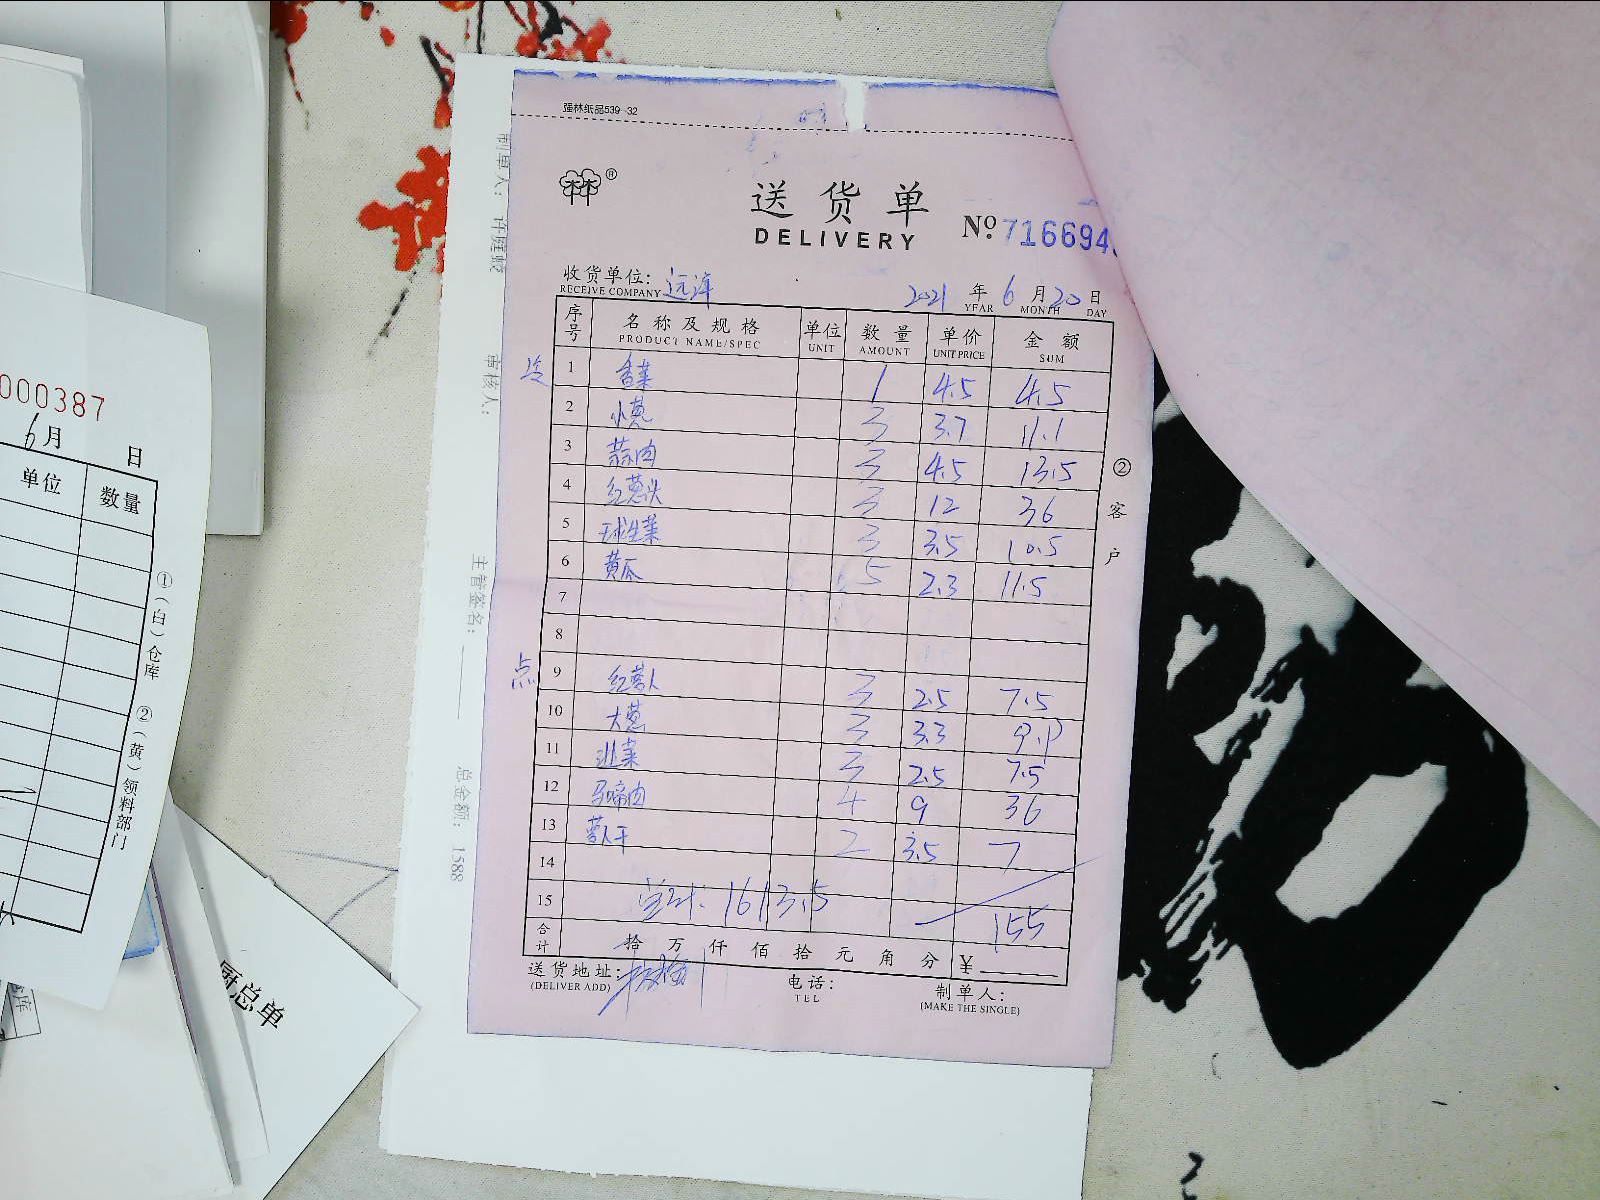 强林纸品539-32
送货单
DELIVERY
Nº 716694
收货单位：远洋 2021年6月20日
RECEIVE COMPANY YEAR MONTH DAY
序号 名称及规格 单位 数量 单价 金额
PRODUCT NAME/SPEC UNIT AMOUNT UNIT PRICE SUM
1 香菜 1 4.5 4.5
2 小葱 3 3.7 11.1
3 蒜肉 3 4.5 13.5
4 红葱头 3 12 36
5 球生菜 3 3.5 10.5
6 黄瓜 5 2.3 11.5
7
8
点 9 红萝卜 3 2.5 7.5
10 大葱 3 3.3 9.9
11 韭菜 3 2.5 7.5
12 马啼肉 4 9 36
13 萝卜干 2 3.5 7
14
15 总计: 1613.5 155
合计 拾万仟佰拾元角分 ¥
送货地址： 电话： 制单人：
(DELIVER ADD) TEL (MAKE THE SINGLE)
②客户
制单人：许庭蛟
审核人：
主管签名：
总金额：1588
000387
6月 日
单位 数量
①（白）仓库 ②（黄）领料部门
厨总单